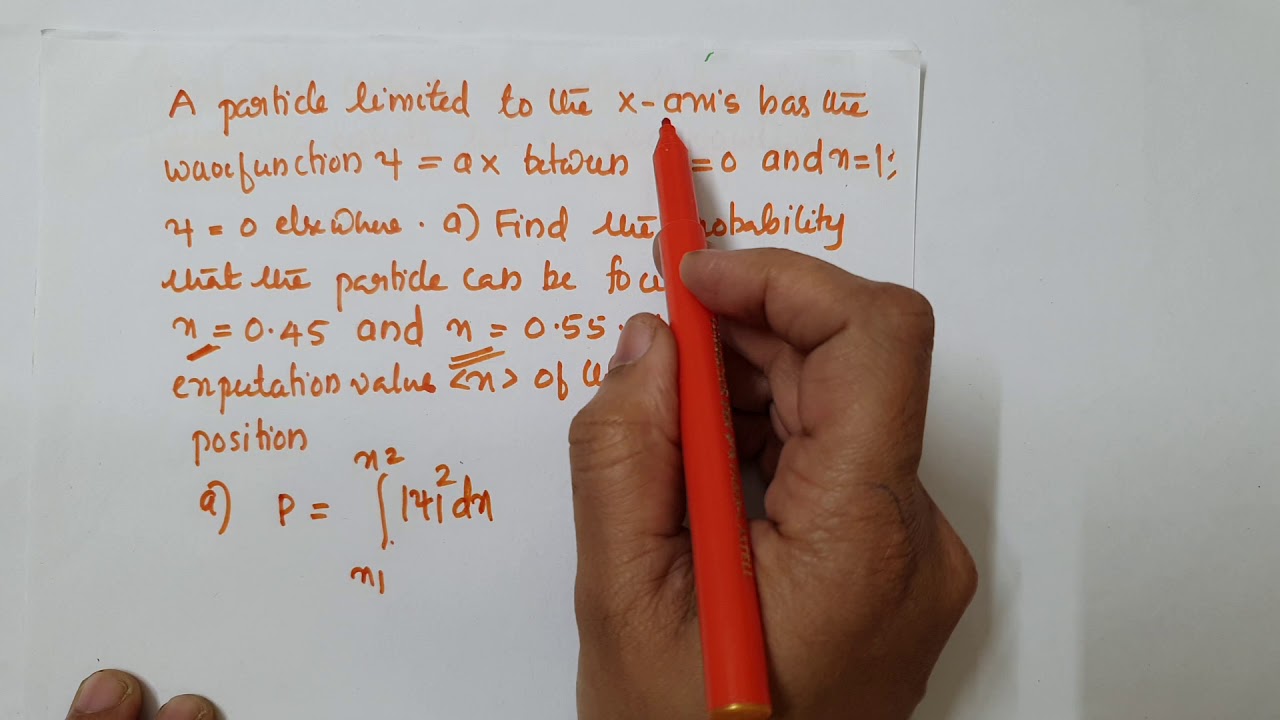 A particle limited to the x-axis has the
wavefunction ψ = ax between =0 and x=1;
ψ = 0 elsewhere. a) Find the probability
that the particle can be
x = 0.45 and x = 0.55.
expectation value <x> of
position
a) P = ∫ |ψ|² dx
x2
x1